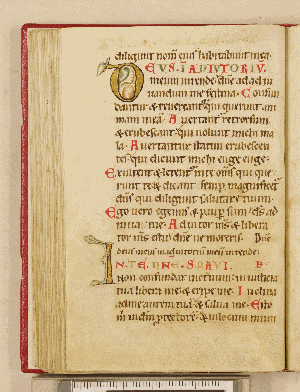 diligunt nom̄ eius habitabunt in ea.
DEVS. Ī ADIVTORIV̄
meum intende dn̄e ad adiu
uandum me festina. Confun
dantur & reuereant᷑ qui querunt ani
mam meā. Auertant᷑ retrorsum
& erubescant qui uolunt michi ma
la. Auertantur statim erubescen
tes qui dicunt michi euge euge.
Exultent & letent᷑ in te om̄s qui que
runt te & dicant semp̄ magnificet᷑
dn̄s qui diligunt salutare tuum.
Ego uero egenus & paup̄ sum ds̄ ad
iuua me. Adiutor m̄s & libera
tor m̄s es tu dn̄e ne moreris.
deus meus in adiutoriū meū intende.
IN TE DNE SPAVI.
non confundar in eternum in iusticia
tua libera me & eripe me. Inclina
ad me aurem tuā & salua me. Esto
m̄ in dm̄ p̄tectorē & in locum muni